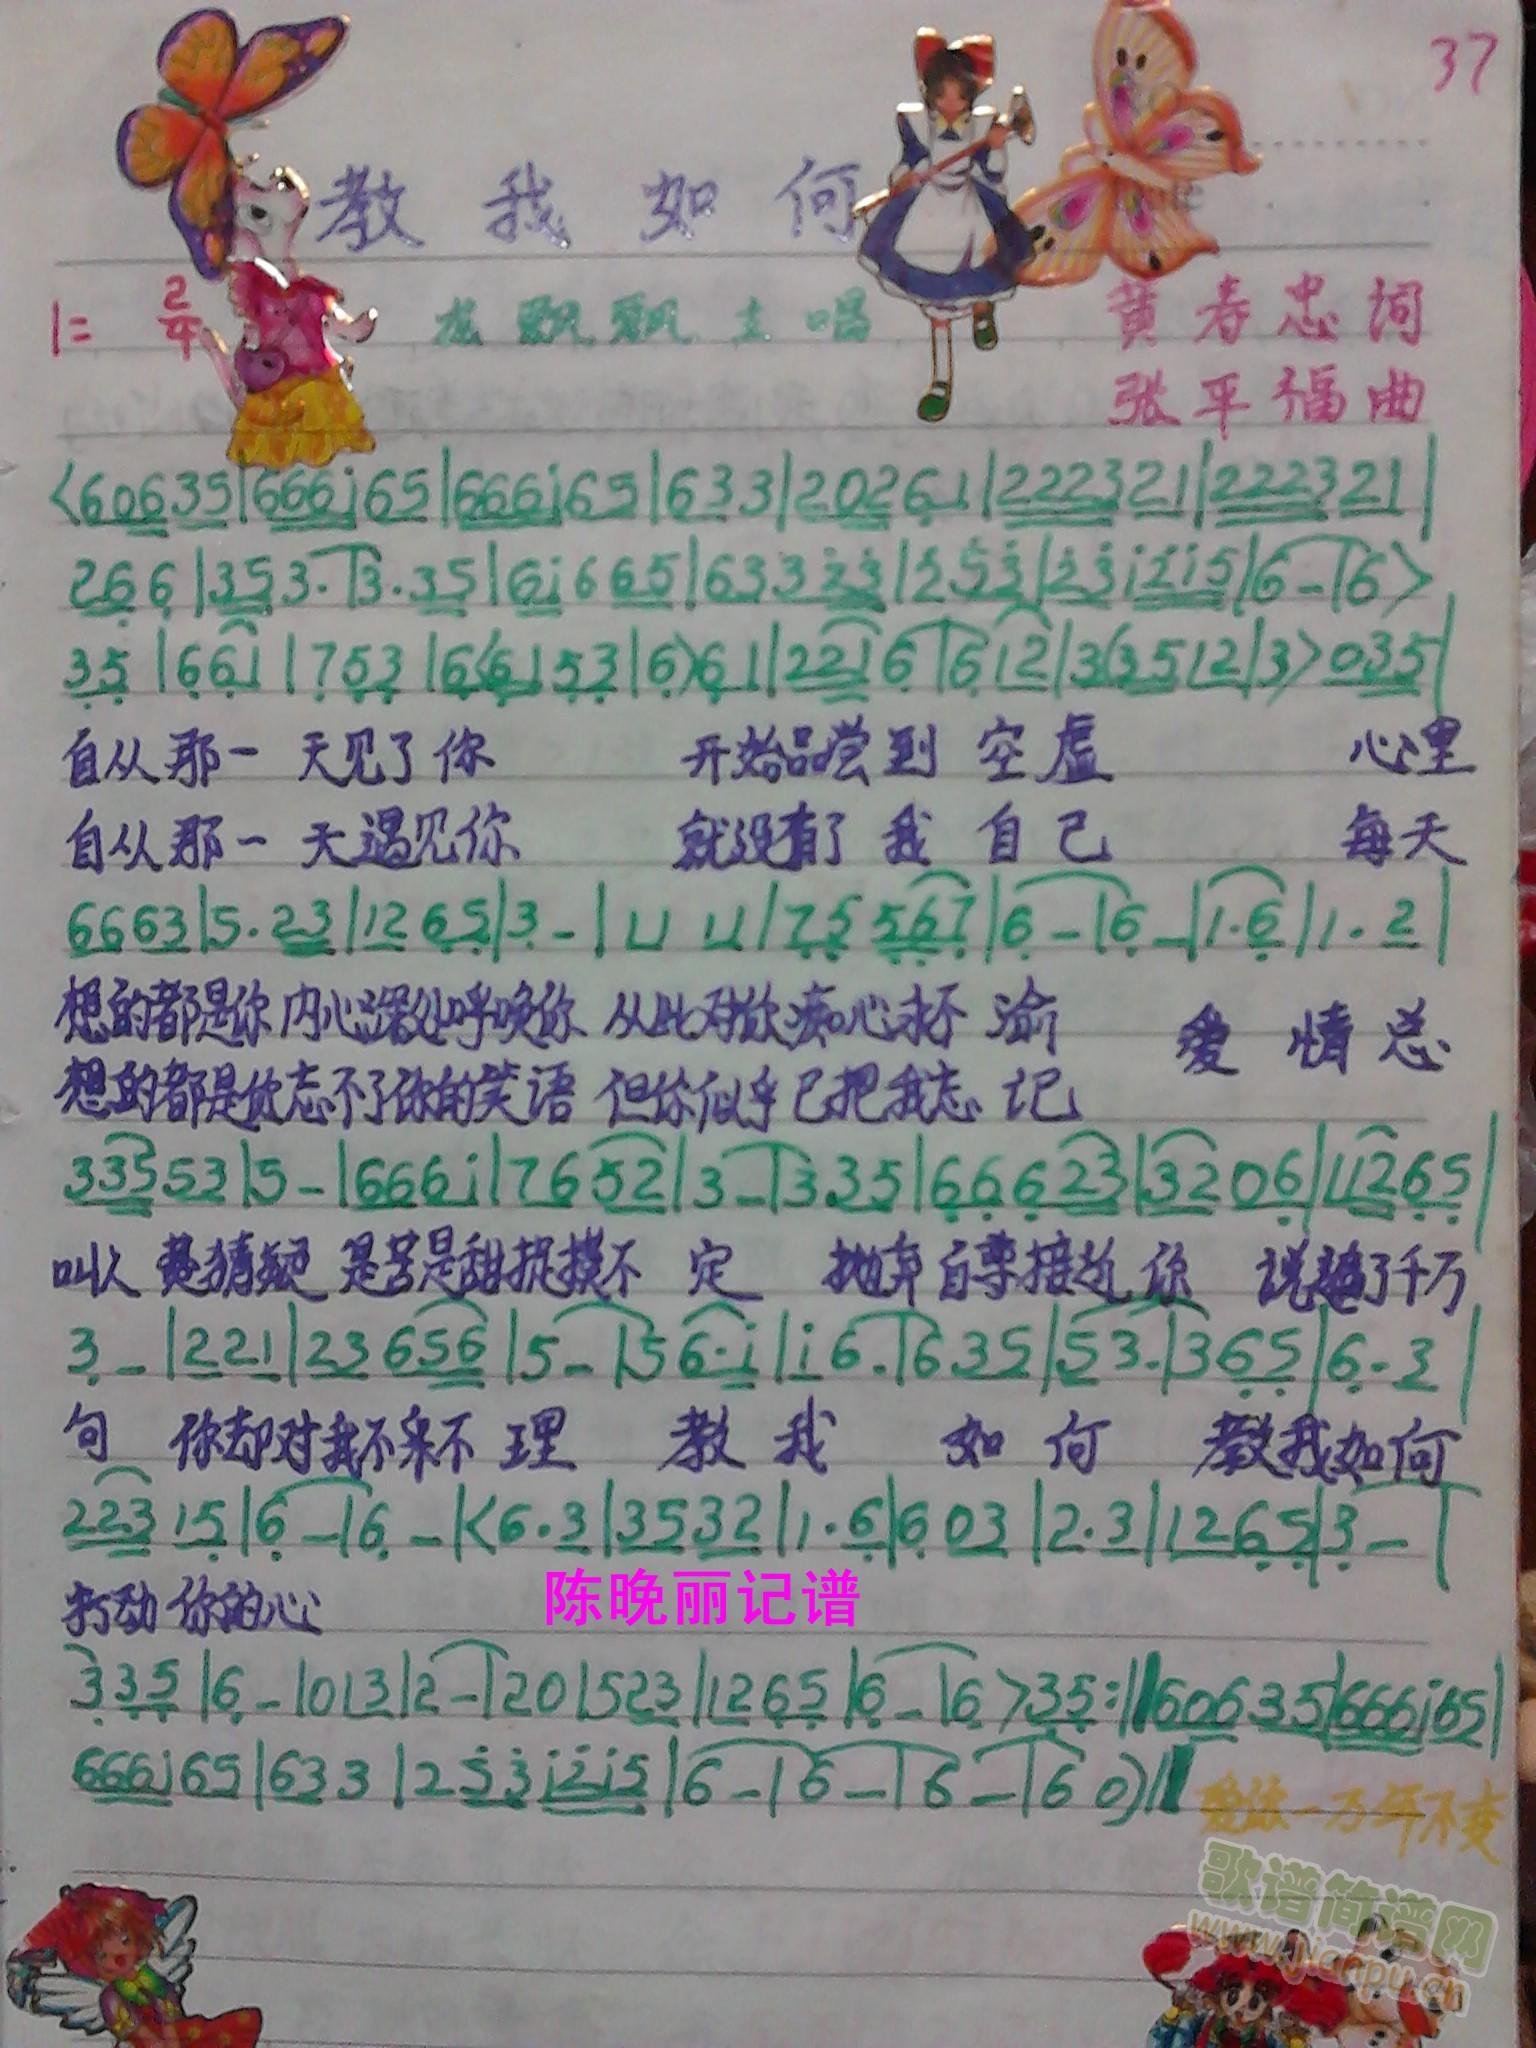 37
教我如何
1= 2/4 龙飘飘主唱 黄春忠词
张平福曲
<60635|666i65|666i65|633|20261|222321|222321|
266|353.|3.35|6i665|63323|253|23i2i5|6-|6>
35|661|7053|6<6153|6>61|2216|612|3<3512|3>035|
自从那一天见了你 开始品尝到空虚 心里
自从那一天遇见你 就没有了我自己 每天
6663|5.23|1265|3-|11 11|75567|6-|6-|1.6|1.2|
想的都是你内心深处呼唤你 从此对你痴心永不渝 爱情总
想的都是你忘不了你的笑语 但你似乎已把我忘记
33353|5-|666i|7652|3-|335|66623|3206|11265|
叫人费猜疑 是苦是甜捉摸不定 抛弃自尊接近你 说遍了千万
3-|221|23656|5-|56.i|i6.|635|53.|365|6.3|
句 你却对我不采不理 教我如何 教我如何
22315|6-|6-|<6.3|3532|1.6|603|2.3|1265|3-|
打动你的心
陈晚丽记谱
335|6-|013|2-|20|523|1265|6-|6>35:||60635|666i65|
666i65|633|253i2i5|6-|6-|6-|60)||
爱你一万年不变
歌谱简谱网
www.jianpu.cn